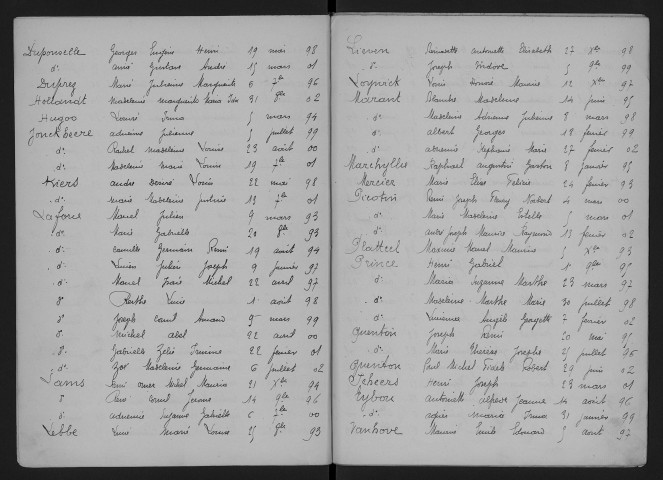 Duponselle Georges Eugène Henri 19 mai 98
d° Gustave André 15 mars 01
Duprez Marie Julienne Marguerite 6 7bre 96
Madeleine Marguerite Maria 31 8bre 02
Hugoo Irma 5 mars 94
Jonckheere adrienne Julienne 5 juillet 99
d° Rachel Madeleine Louise 23 août 00
d° Madeleine Marie Louise 19 7bre 01
Kiers andré Louis 22 mai 98
d° Marie Madeleine Julienne 13 7bre 01
Lafour Marcel Julien 9 mars 93
d° Marie Gabrielle 20 8bre 93
d° Camille Germain Remi 19 août 94
d° Lucien Julien Joseph 9 janvier 97
d° Marcel Michel 22 avril 97
d° Berthe 1er août 98
d° Joseph Camil Armand 9 mars 99
d° Michel abel 22 avril 00
d° Gabrielle Zélie 22 février 01
d° Madeleine Germaine 6 juillet 02
Lams Remi Omer Michel Maurice 21 Xbre 94
d° Cornil 14 9bre 96
d° adrienne Suzanne Gabrielle 6 7bre 00
Lebbe Marie Louise 25 8bre 93
Lieven Bernadette antoinette Elisabeth 27 Xbre 98
d° Joseph Isidore 5 9bre 99
Louis Honoré Maurice 12 Xbre 97
Marant Blanche Madeleine 14 juin 95
d° Madeleine Adrienne Julienne 8 mars 98
d° albert Georges 18 février 99
d° adrienne Stéphanie Marie 27 février 02
Marchyllie Raphaël augustin Gaston 8 janvier 95
Mercier Marie Elise 24 février 93
René Joseph Norbert 4 mai 00
d° Marie Madeleine Estelle 5 mars 01
d° Joseph Maurice Raymond 13 février 02
Platteel Maxime Marcel Maurice 5 Xbre 93
Prince Henri Gabriel 8 9bre 95
d° Maria Suzanne Marthe 23 mars 97
d° Madeleine Marthe Marie 30 juillet 98
d° Angèle Georgette 7 février 02
Quenton Joseph Remi 20 mai 95
d° Marie Thérèse Josèphe 25 juillet 96
Quenton Paul Michel Robert 29 juin 02
Henri Joseph 23 mars 01
Tybou antoinette Jeanne 14 août 96
d° agnès Maria Irma 31 janvier 99
Vanhove Maurice Emile Edouard 5 août 97